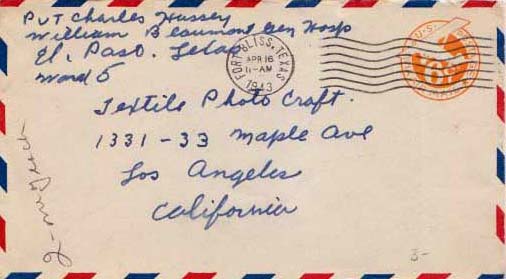 Pvt Charles Hussey
William Beaumont Gen Hosp
El. Paso. Texas
Ward 5
FORT BLISS, TEXAS
APR 16
11-AM
1943
U.S.
6¢
Textile Photo Craft.
1331-33 Maple Ave
Los Angeles
California
3-